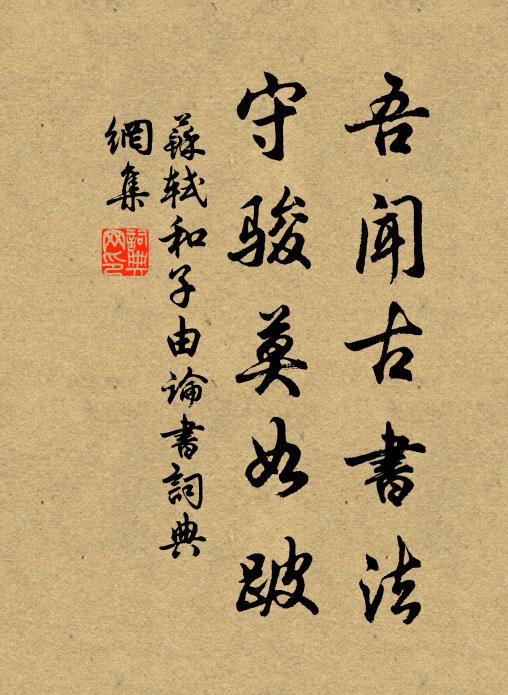 吾闻古書法
守骏莫如跛
蘇軾和子由論書詞典
網集
詞典
网印